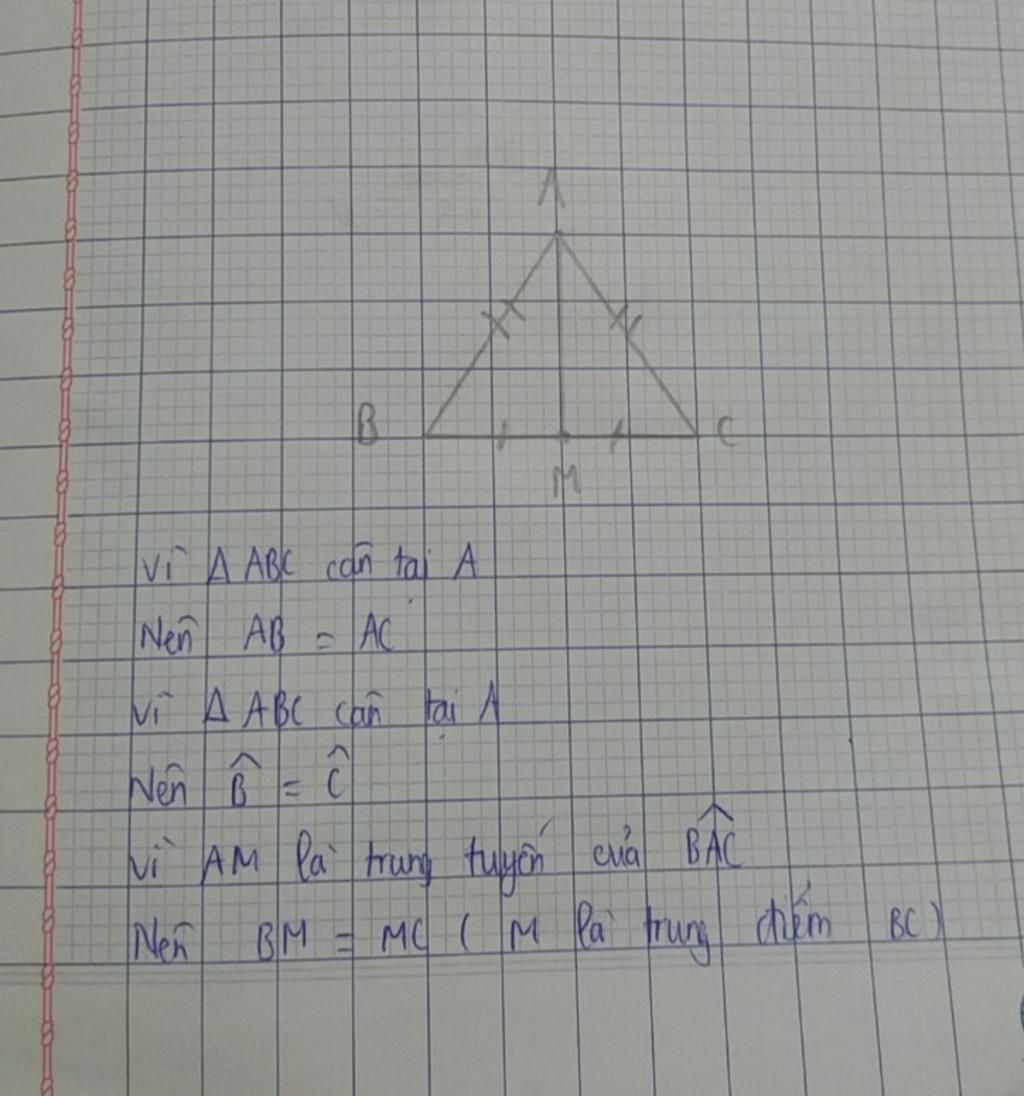 A
B
C
M
Vì Δ ABC cân tại A
Nên AB = AC
Vì Δ ABC cân tại A
Nên B̂ = Ĉ
Vì AM là trung tuyến của B̂AC
Nên BM = MC ( M là trung điểm BC)